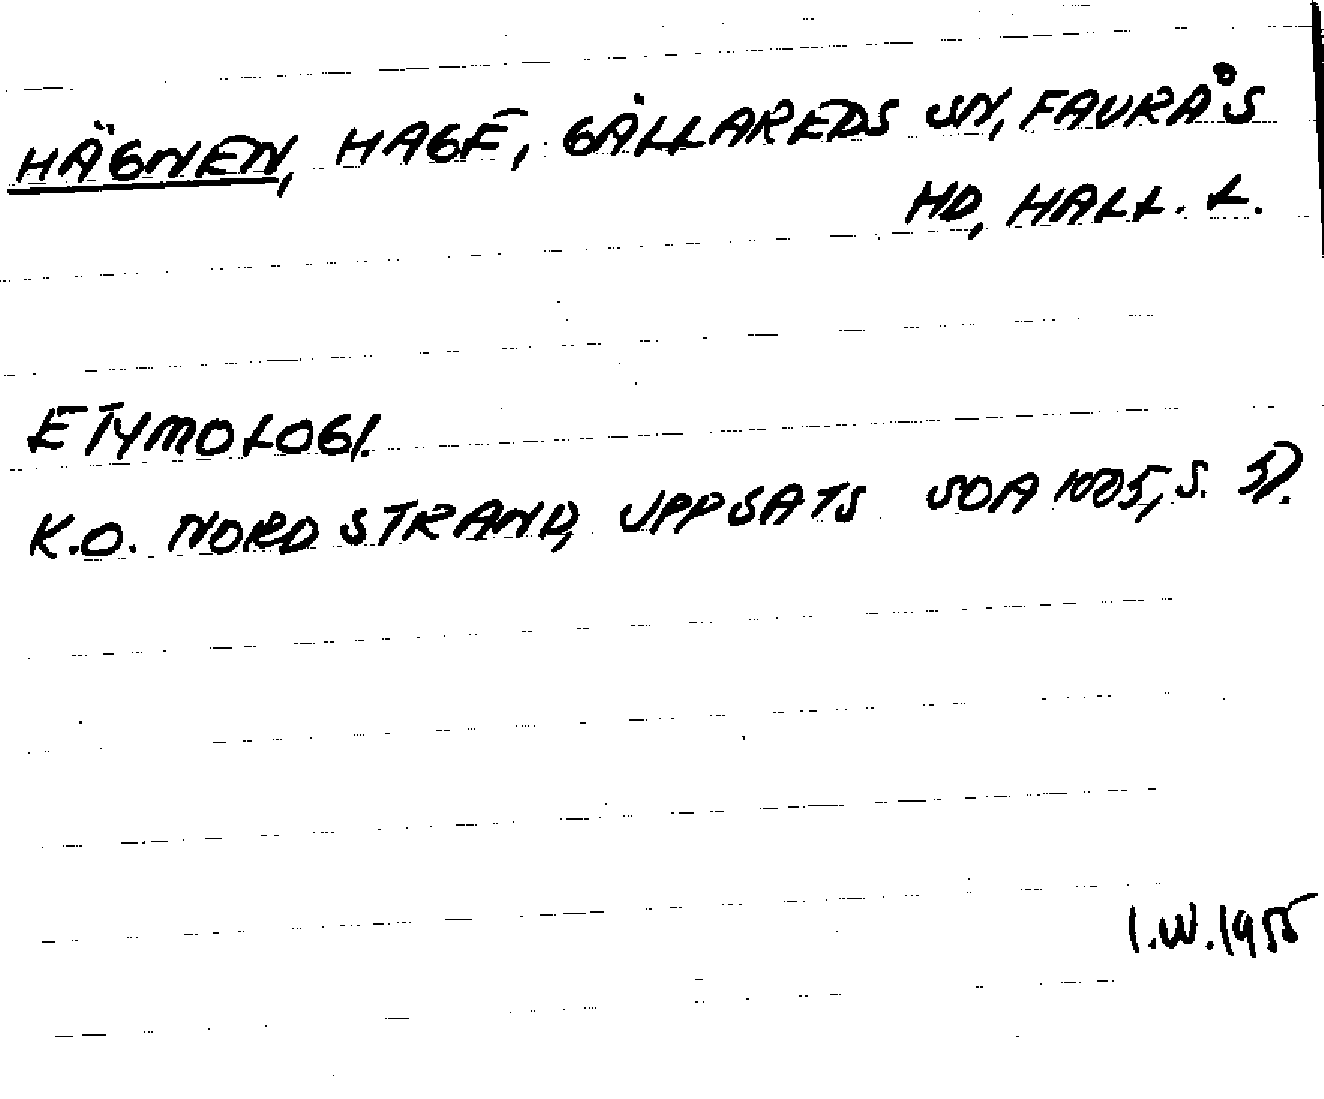 HÄGNEN, HAGE, GÄLLAREDS SN, FAURÅS
HD, HALL. L.
ETYMOLOGI.
K.O. NORDSTRAND, UPPSATS SOA 1005, S.
I.W. 1955